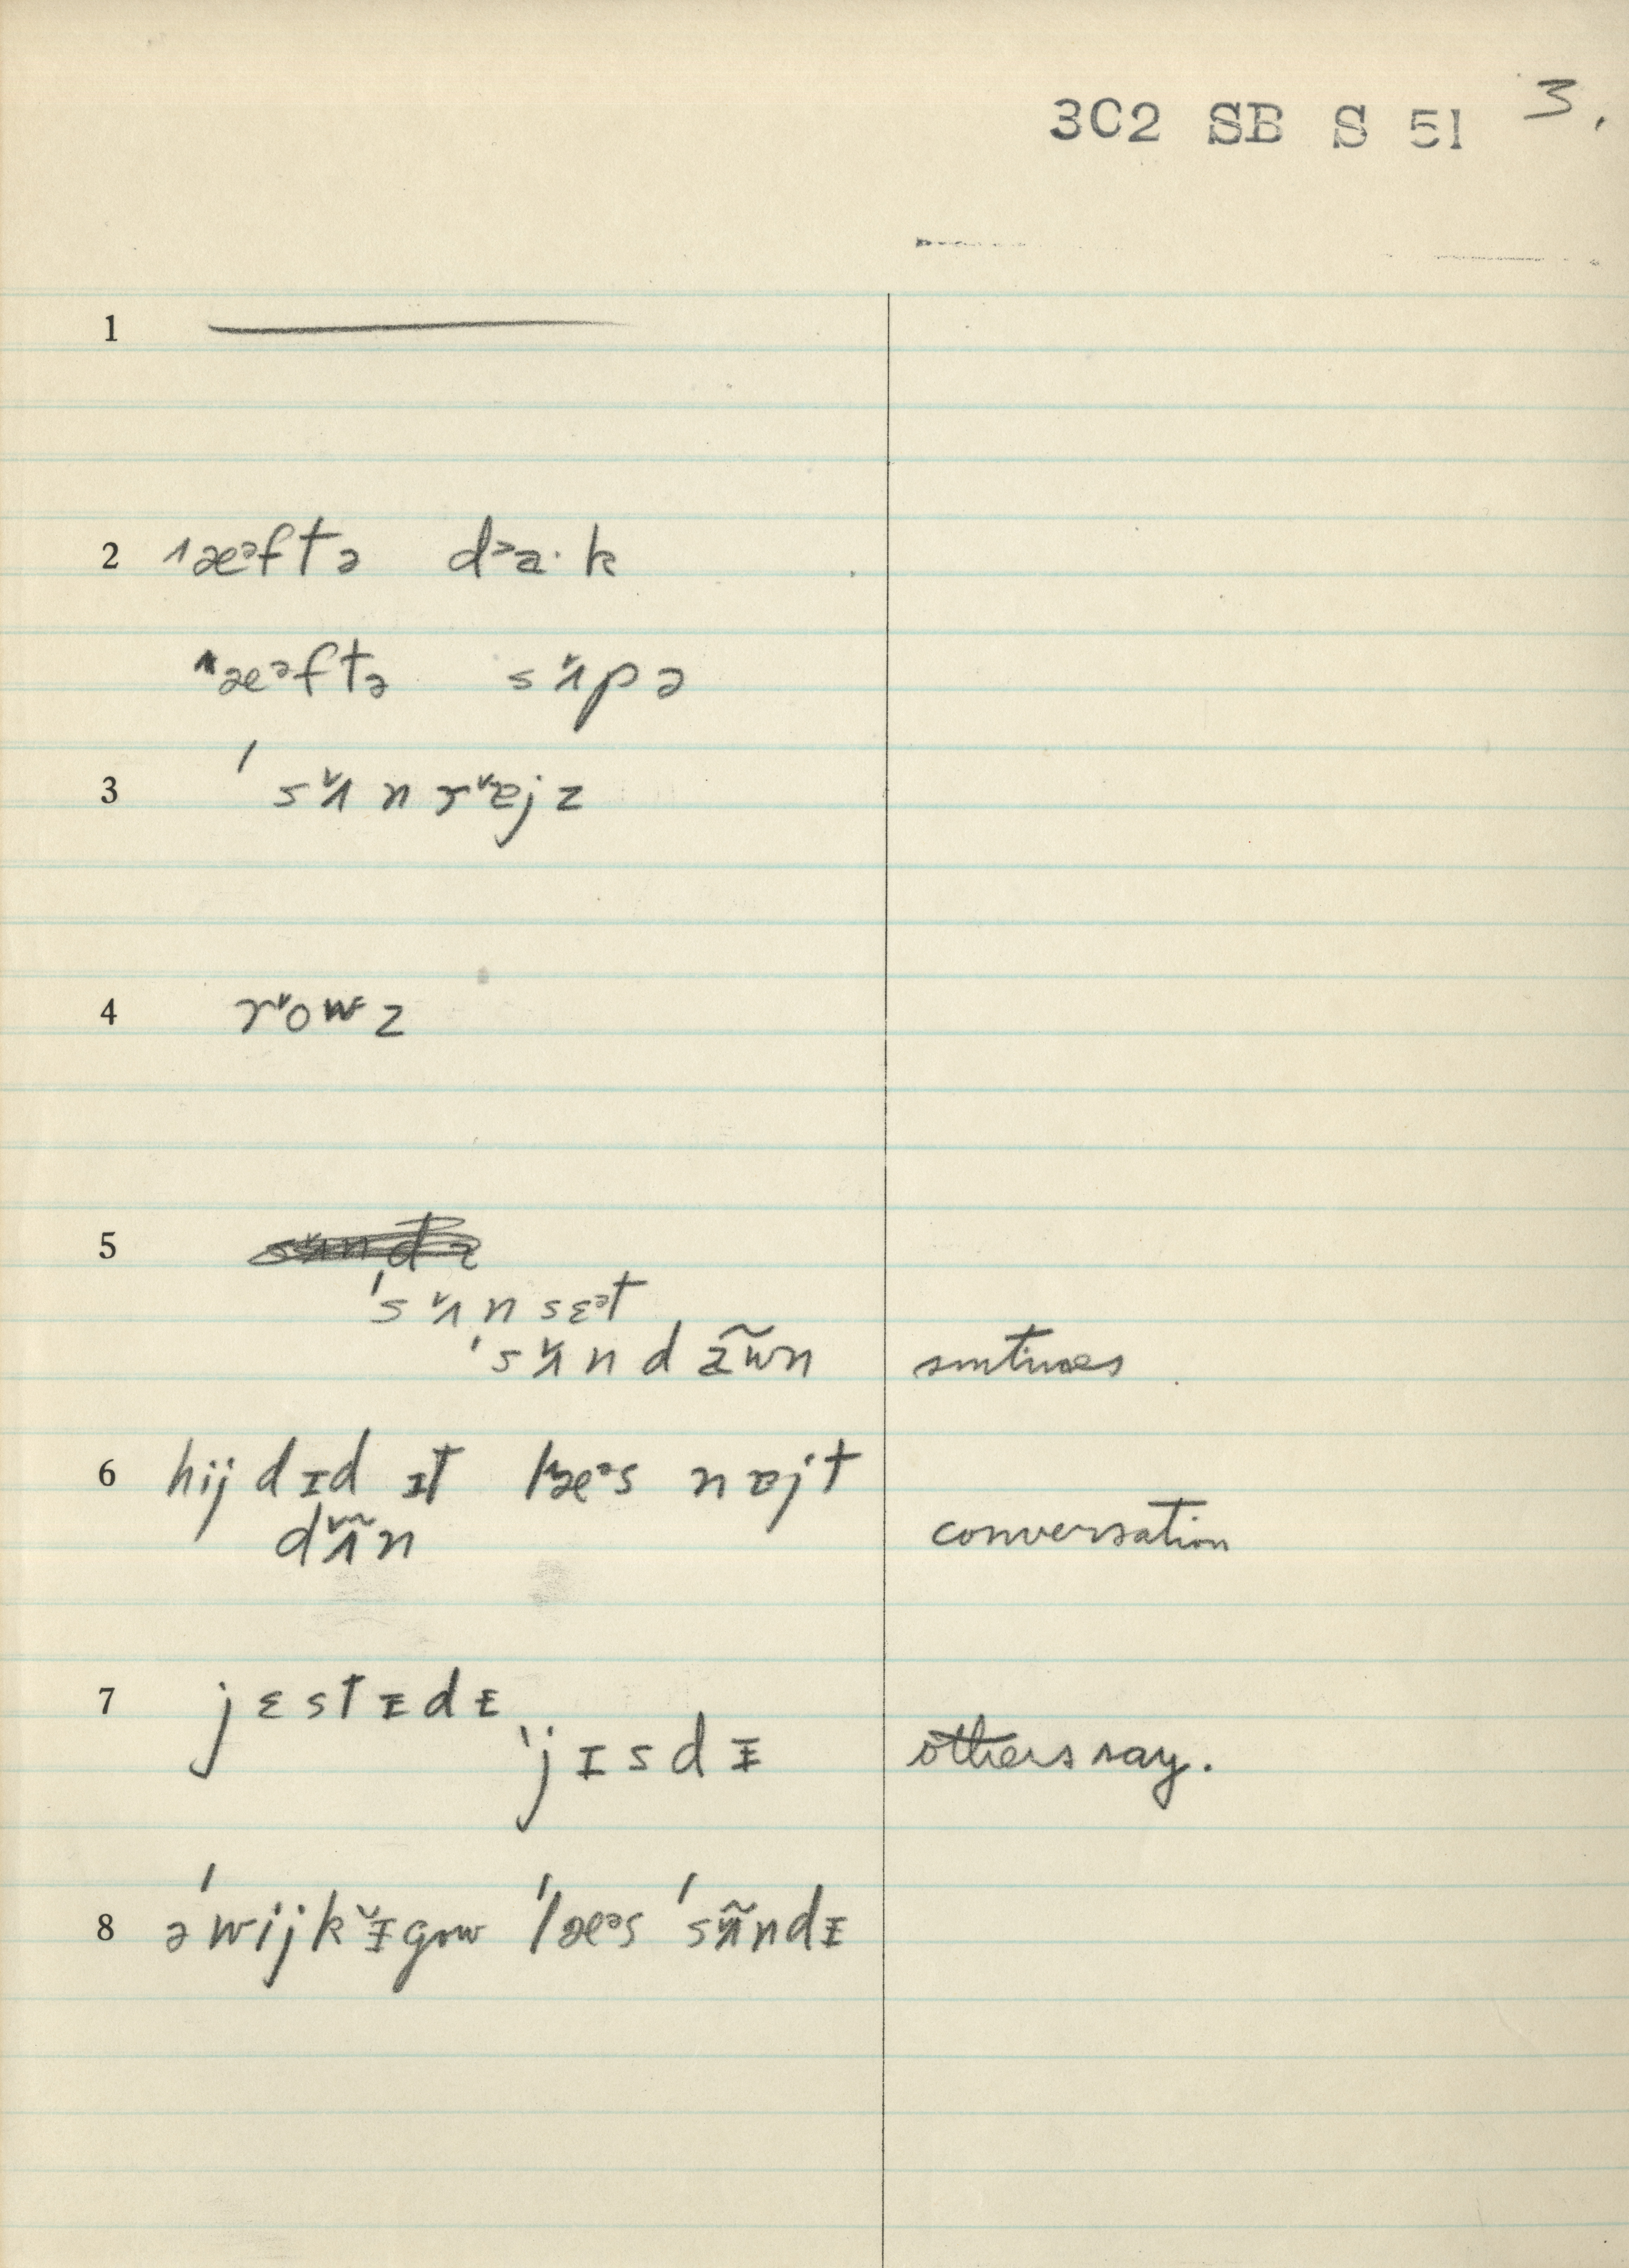 3C2 SB S 51 3.
1
2 ˈæᵊftə dᵊa·k
ˈæᵊftə sʌ̌pə
3 ˈsʌ̌nrɐ̌jz
4 rˇowz
5
ˈsʌ̌nsɛᵊt
ˈsʌ̌ndãw̃n smtimes
6 hij dɪd ɪt læᵊs nɐjt
dʌ̃n conversation
7 jɛstɪdɪ
ˈjɪsdɪ others say.
8 əˈwijkɪ̌gow ˈlæᵊs ˈsʌ̃ndɪ